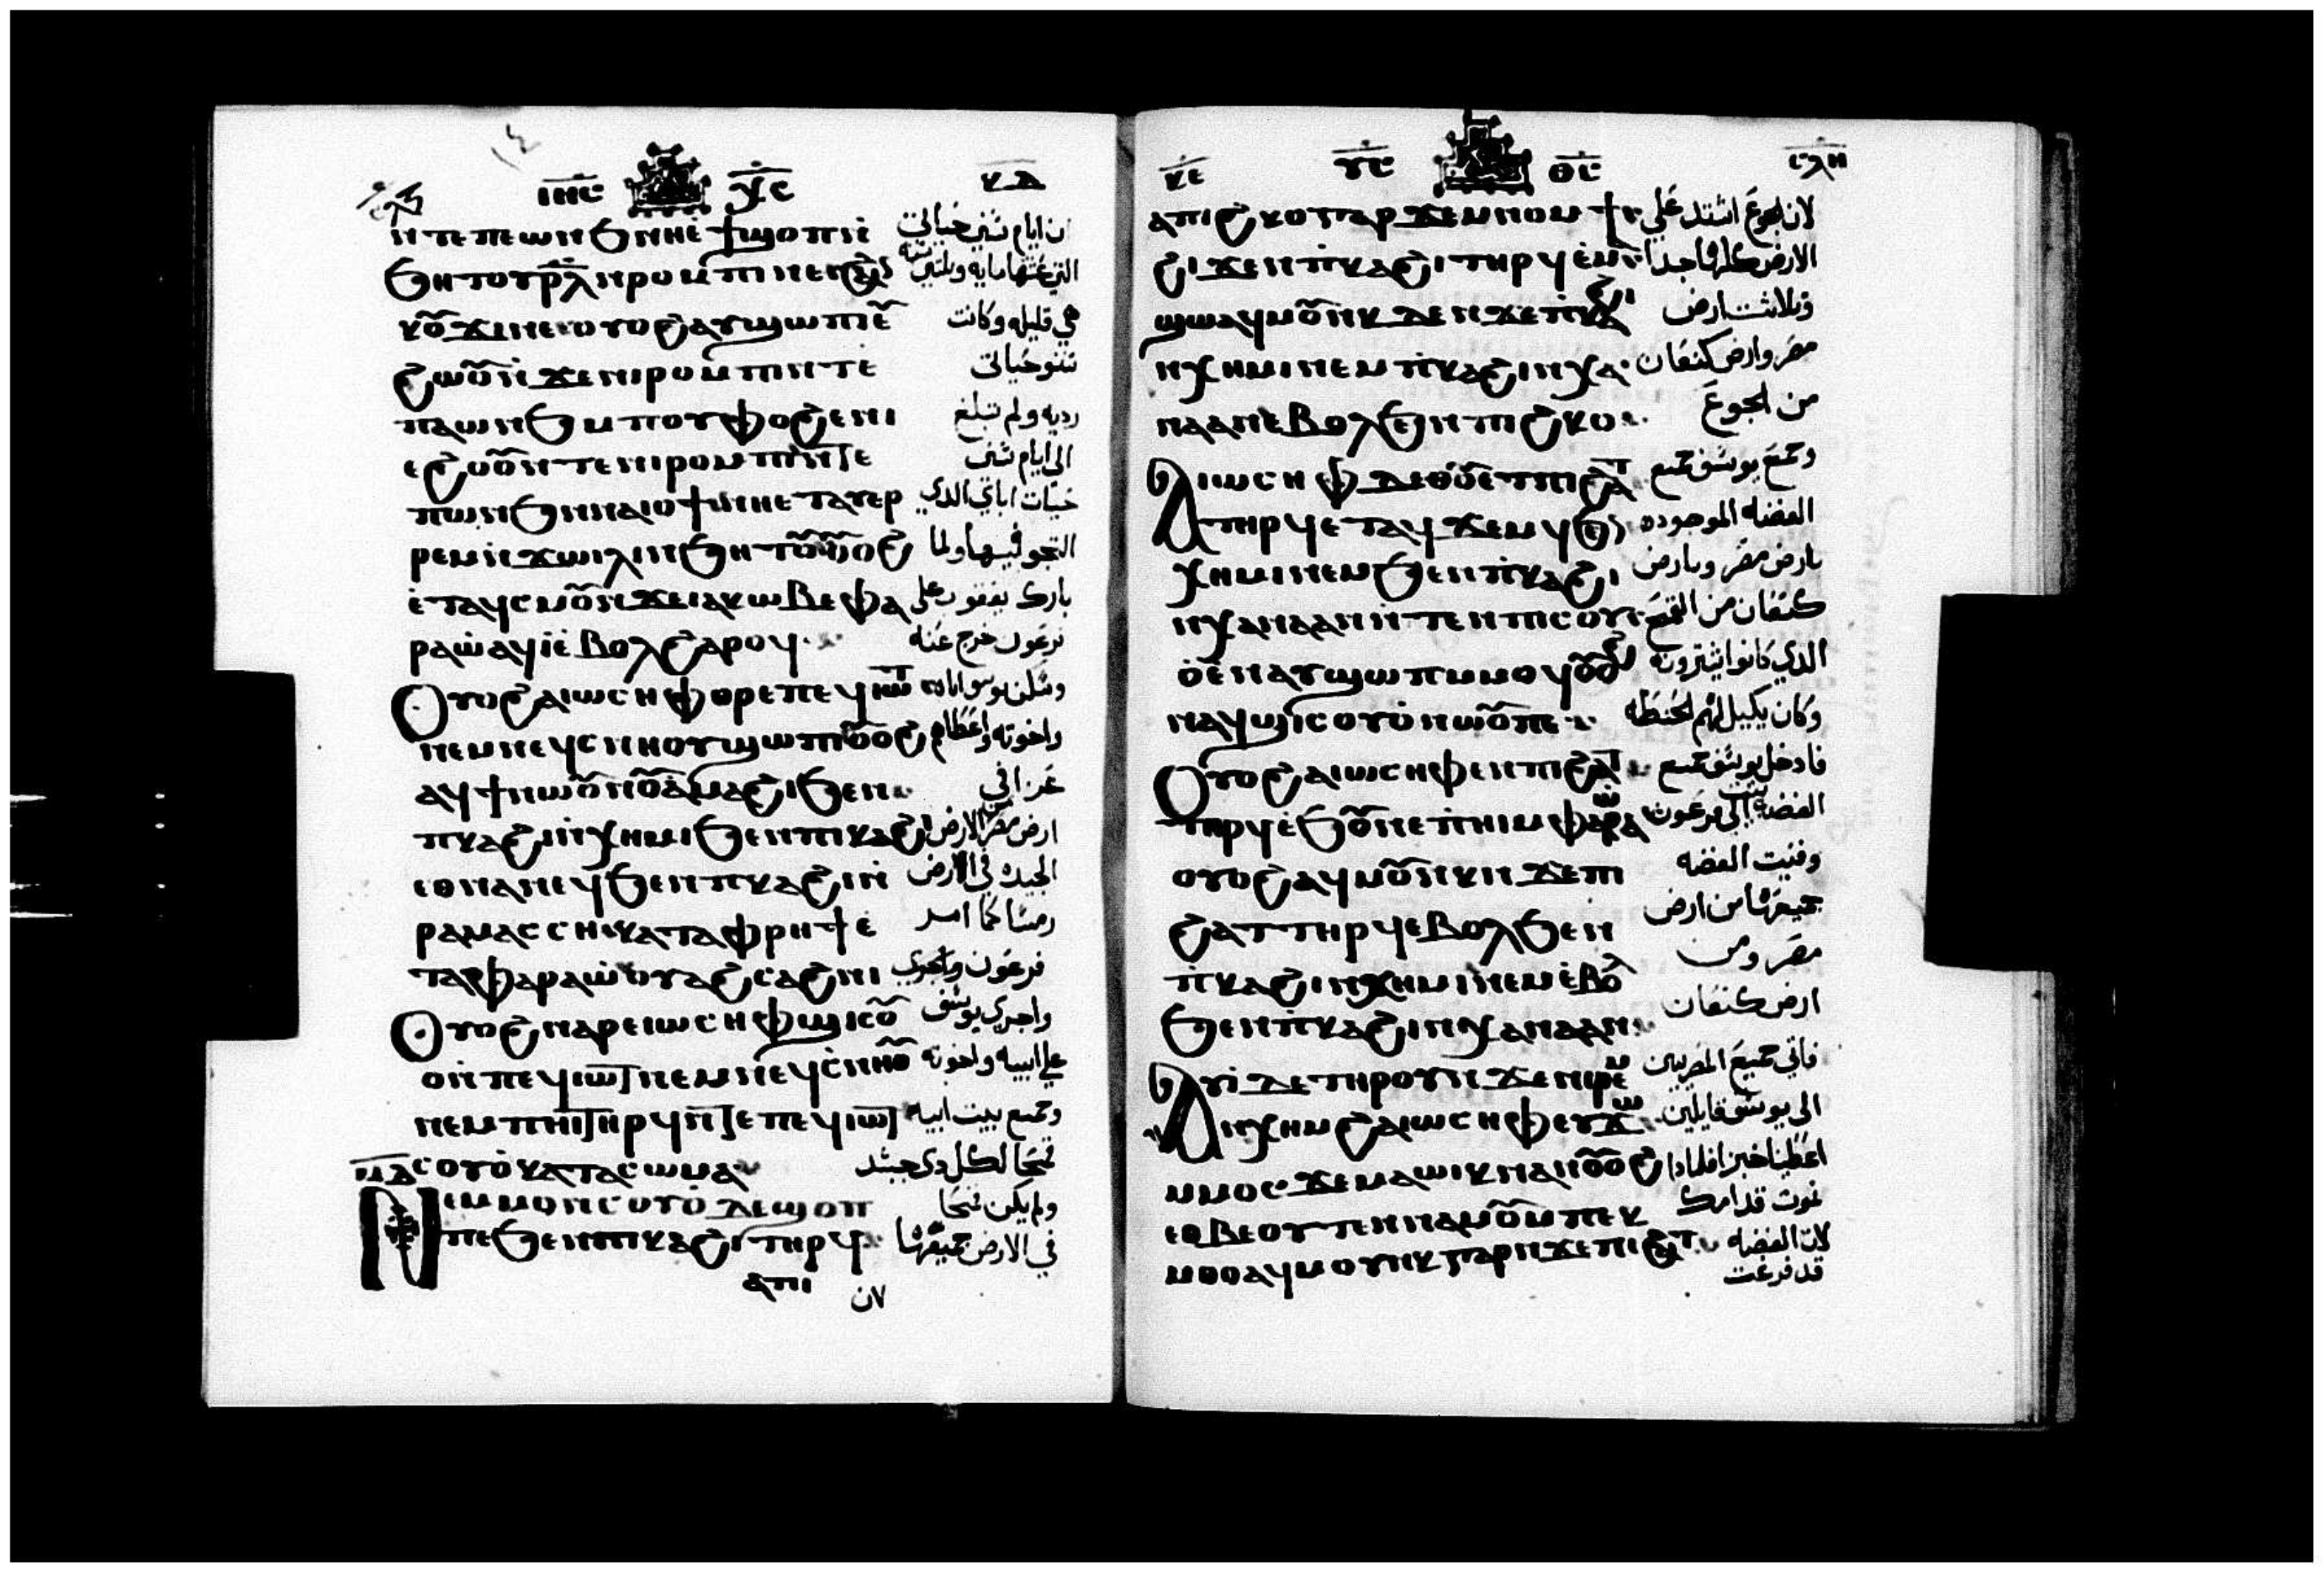 ⲓⲏⲥ ⲭⲥ ⲕⲇ
ⲛⲧⲉⲡⲉⲱⲛϧ ⲛⲏⲉ̀ϯϣⲟⲡ ⲛ̀
ان ايام سني حياتي
ϧⲏⲧⲟⲩ ⲣⲗ ⲛⲣⲟⲙⲡⲓ
ⲕⲟⲩϫⲓ ⲛⲉ ⲟⲩⲟϩ ⲁⲩϣⲱⲡⲓ ⲉⲩ
هي قليله وكانت
ϩⲱⲟⲩ ⲛ̀ϫⲉⲛⲓⲣⲟⲙⲡⲓ ⲛⲧⲉ
سنو حياتي
ⲡⲁⲱⲛϧ ⲙⲡⲟⲩⲫⲟϩ ⲉⲛⲓ
رديه ولم تبلغ
ⲉϩⲟⲟⲩ ⲛⲧⲉⲛⲓⲣⲟⲙⲡⲓ ⲛⲧⲉ
الي ايام سني
ⲡⲱⲛϧ ⲛⲛⲁⲓⲟϯ ⲛⲏⲉⲧⲁⲩⲉⲣ
حيات اباي الذي
ⲣⲉⲙⲛ̀ϫⲱⲓⲗⲓ ⲛϧⲏⲧⲟⲩ ⲟⲩⲟϩ
التجو فيها ولما
ⲉ̀ⲧⲁϥⲥⲙⲟⲩ ⲛϫⲉⲓⲁⲕⲱⲃ ⲉⲫⲁ
بارك يعقوب علي
ⲣⲁⲱ̀ ⲁϥⲓ̀ ⲉ̀ⲃⲟⲗ ϩⲁⲣⲟϥ
فرعون خرج عنه
ⲟⲩⲟϩ ⲁⲓⲱⲥⲏⲫ ⲟⲣⲉⲡⲉϥⲓⲱⲧ
وسكن يوسف اباه
ⲛⲉⲙⲛⲉϥⲥⲛⲏⲟⲩ ϣⲱⲡⲓ ⲟⲩⲟϩ
واخوته واعطاهم
ⲁϥϯ ⲛⲱⲟⲩ ⲛⲟⲩⲁ̀ⲙⲁϩⲓ ϧⲉⲛ
عزا في
ⲡⲕⲁϩⲓ ⲛ̀ⲭⲏⲙⲓ ϧⲉⲛⲡⲓⲕⲁϩⲓ
ارض مصر الارض
ⲉⲑⲛⲁⲛⲉϥ ϧⲉⲛⲡⲕⲁϩⲓ ⲛ̀
الجيده في الارض
ⲣⲁⲙⲁⲥⲥⲏ ⲕⲁⲧⲁⲫⲣⲏϯ ⲉ̀
رمسا كما امر
ⲧⲁⲫⲁⲣⲁⲱ̀ ⲟⲩⲁϩⲥⲁϩⲛⲓ
فرعون
ⲟⲩⲟϩ ⲛⲁⲣⲉⲓⲱⲥⲏⲫ ϣⲓⲥⲟⲩ
واجري يوسف
ⲟ̀ⲙⲡⲉϥⲓⲱⲧ ⲛⲉⲙⲛⲉϥⲥⲛⲏⲟⲩ
علي ابيه واخوته
ⲛⲉⲙⲡⲏⲓ ⲧⲏⲣϥ ⲛⲧⲉⲡⲉϥⲓⲱⲧ
وجميع بيت ابيه
ⲥⲟⲩⲟ̀ ⲕⲁⲧⲁⲥⲱⲙⲁ
قمحا لكل ذي جسد
ⲛⲉⲙⲙⲟⲛ ⲥⲟⲩⲟ̀ ⲇⲉ ϣⲟⲡ
ولم يكن قمحا
ⲡⲉ ϧⲉⲛⲡⲓⲕⲁϩⲓ ⲧⲏⲣϥ
في الارض جميعها
ⲁⲡⲓ لان
ⲕⲉ ⲩⲥ ⲑⲥ
ⲁⲡⲓϩⲕⲟ ⲅⲁⲣ ϫⲉⲙⲛⲟⲙϯ
لان الجوع اشتد علي
ϩⲓϫⲉⲛⲡⲕⲁϩⲓ ⲧⲏⲣϥ
الارض كلها جدا
ϣⲱ ⲁϥⲙⲟⲩⲛⲕ ⲇⲉ ⲛϫⲉⲡⲕⲁϩⲓ
وتلاشت ارض
ⲛⲭⲏⲙⲓ ⲛⲉⲙⲡⲕⲁϩⲓ ⲛⲭⲁ
مصر وارض كنعان
ⲛⲁⲁⲛ ⲉ̀ⲃⲟⲗϧⲉⲛⲡⲓϩⲕⲟ
من الجوع
ⲁⲓⲱⲥⲏⲫ ⲇⲉ ⲑⲟⲩⲉⲧ ⲡⲓϩⲁⲧ
وجمع يوسف جميع
ⲧⲏⲣϥ ⲉⲧⲁϥϫⲉⲙϥ ϧⲉⲛ
الفضه الموجوده
ⲭⲏⲙⲓ ⲛⲉⲙϧⲉⲛⲡⲕⲁϩⲓ
بارض مصر وبارض
ⲛⲭⲁⲛⲁⲁⲛ ⲛ̀ⲧⲉⲛⲡⲓⲥⲟⲩ
كنعان من القمح
ⲟ̀ ⲉ̀ⲛⲁⲩϣⲱⲡ ⲙⲙⲟϥ ⲟⲩⲟϩ
الذي كانوا يشترونه
ⲛⲁϥϣⲓⲥⲟⲩⲟ̀ ⲛⲱⲟⲩ ⲡⲉ
وكان يكيل لهم الحنطه
ⲟⲩⲟϩ ⲁⲓⲱⲥⲏⲫ ⲉⲛⲡⲓϩⲁⲧ
فادخل يوسف جميع
ⲧⲏⲣϥ ⲉ̀ϧⲟⲩⲛ ⲉⲡⲏⲓ ⲙⲫⲁⲣⲁⲱ̀
الفضه الي بيت فرعون
ⲟⲩⲟϩ ⲁϥⲙⲟⲩⲛⲕ ⲛϫⲉⲡⲓ
وفنيت الفضه
ϩⲁⲧ ⲧⲏⲣϥ ⲉⲃⲟⲗϧⲉⲛ
جميعها من ارض
ⲡⲕⲁϩⲓ ⲛⲭⲏⲙⲓ ⲛⲉⲙ ⲉ̀ⲃⲟⲗ
مصر ومن
ϧⲉⲛⲡⲕⲁϩⲓ ⲛⲭⲁⲛⲁⲁⲛ
ارض كنعان
ⲁⲩⲓ̀ ⲇⲉ ⲧⲏⲣⲟⲩ ⲛϫⲉⲛⲓⲣⲉⲙ
فاتي جميع المصريين
ⲛⲭⲏⲙⲓ ϩⲁⲓⲱⲥⲏⲫ ⲉⲩϫⲱ
الي يوسف قايلين
ⲙⲙⲟⲥ ϫⲉⲙⲁⲱⲓⲕ ⲛⲁⲛ ⲟⲩⲟϩ
اعطينا خبزا فلماذا
ⲉⲑⲃⲉⲟⲩ ⲧⲉⲛⲛⲁⲙⲟⲩ ⲙⲡⲉⲕ
نموت قدامك
ⲙⲑⲟ ⲁϥⲙⲟⲩⲛⲕ ⲅⲁⲣ ⲛϫⲉⲡⲓϩⲁⲧ
لان الفضه
قد فرغت